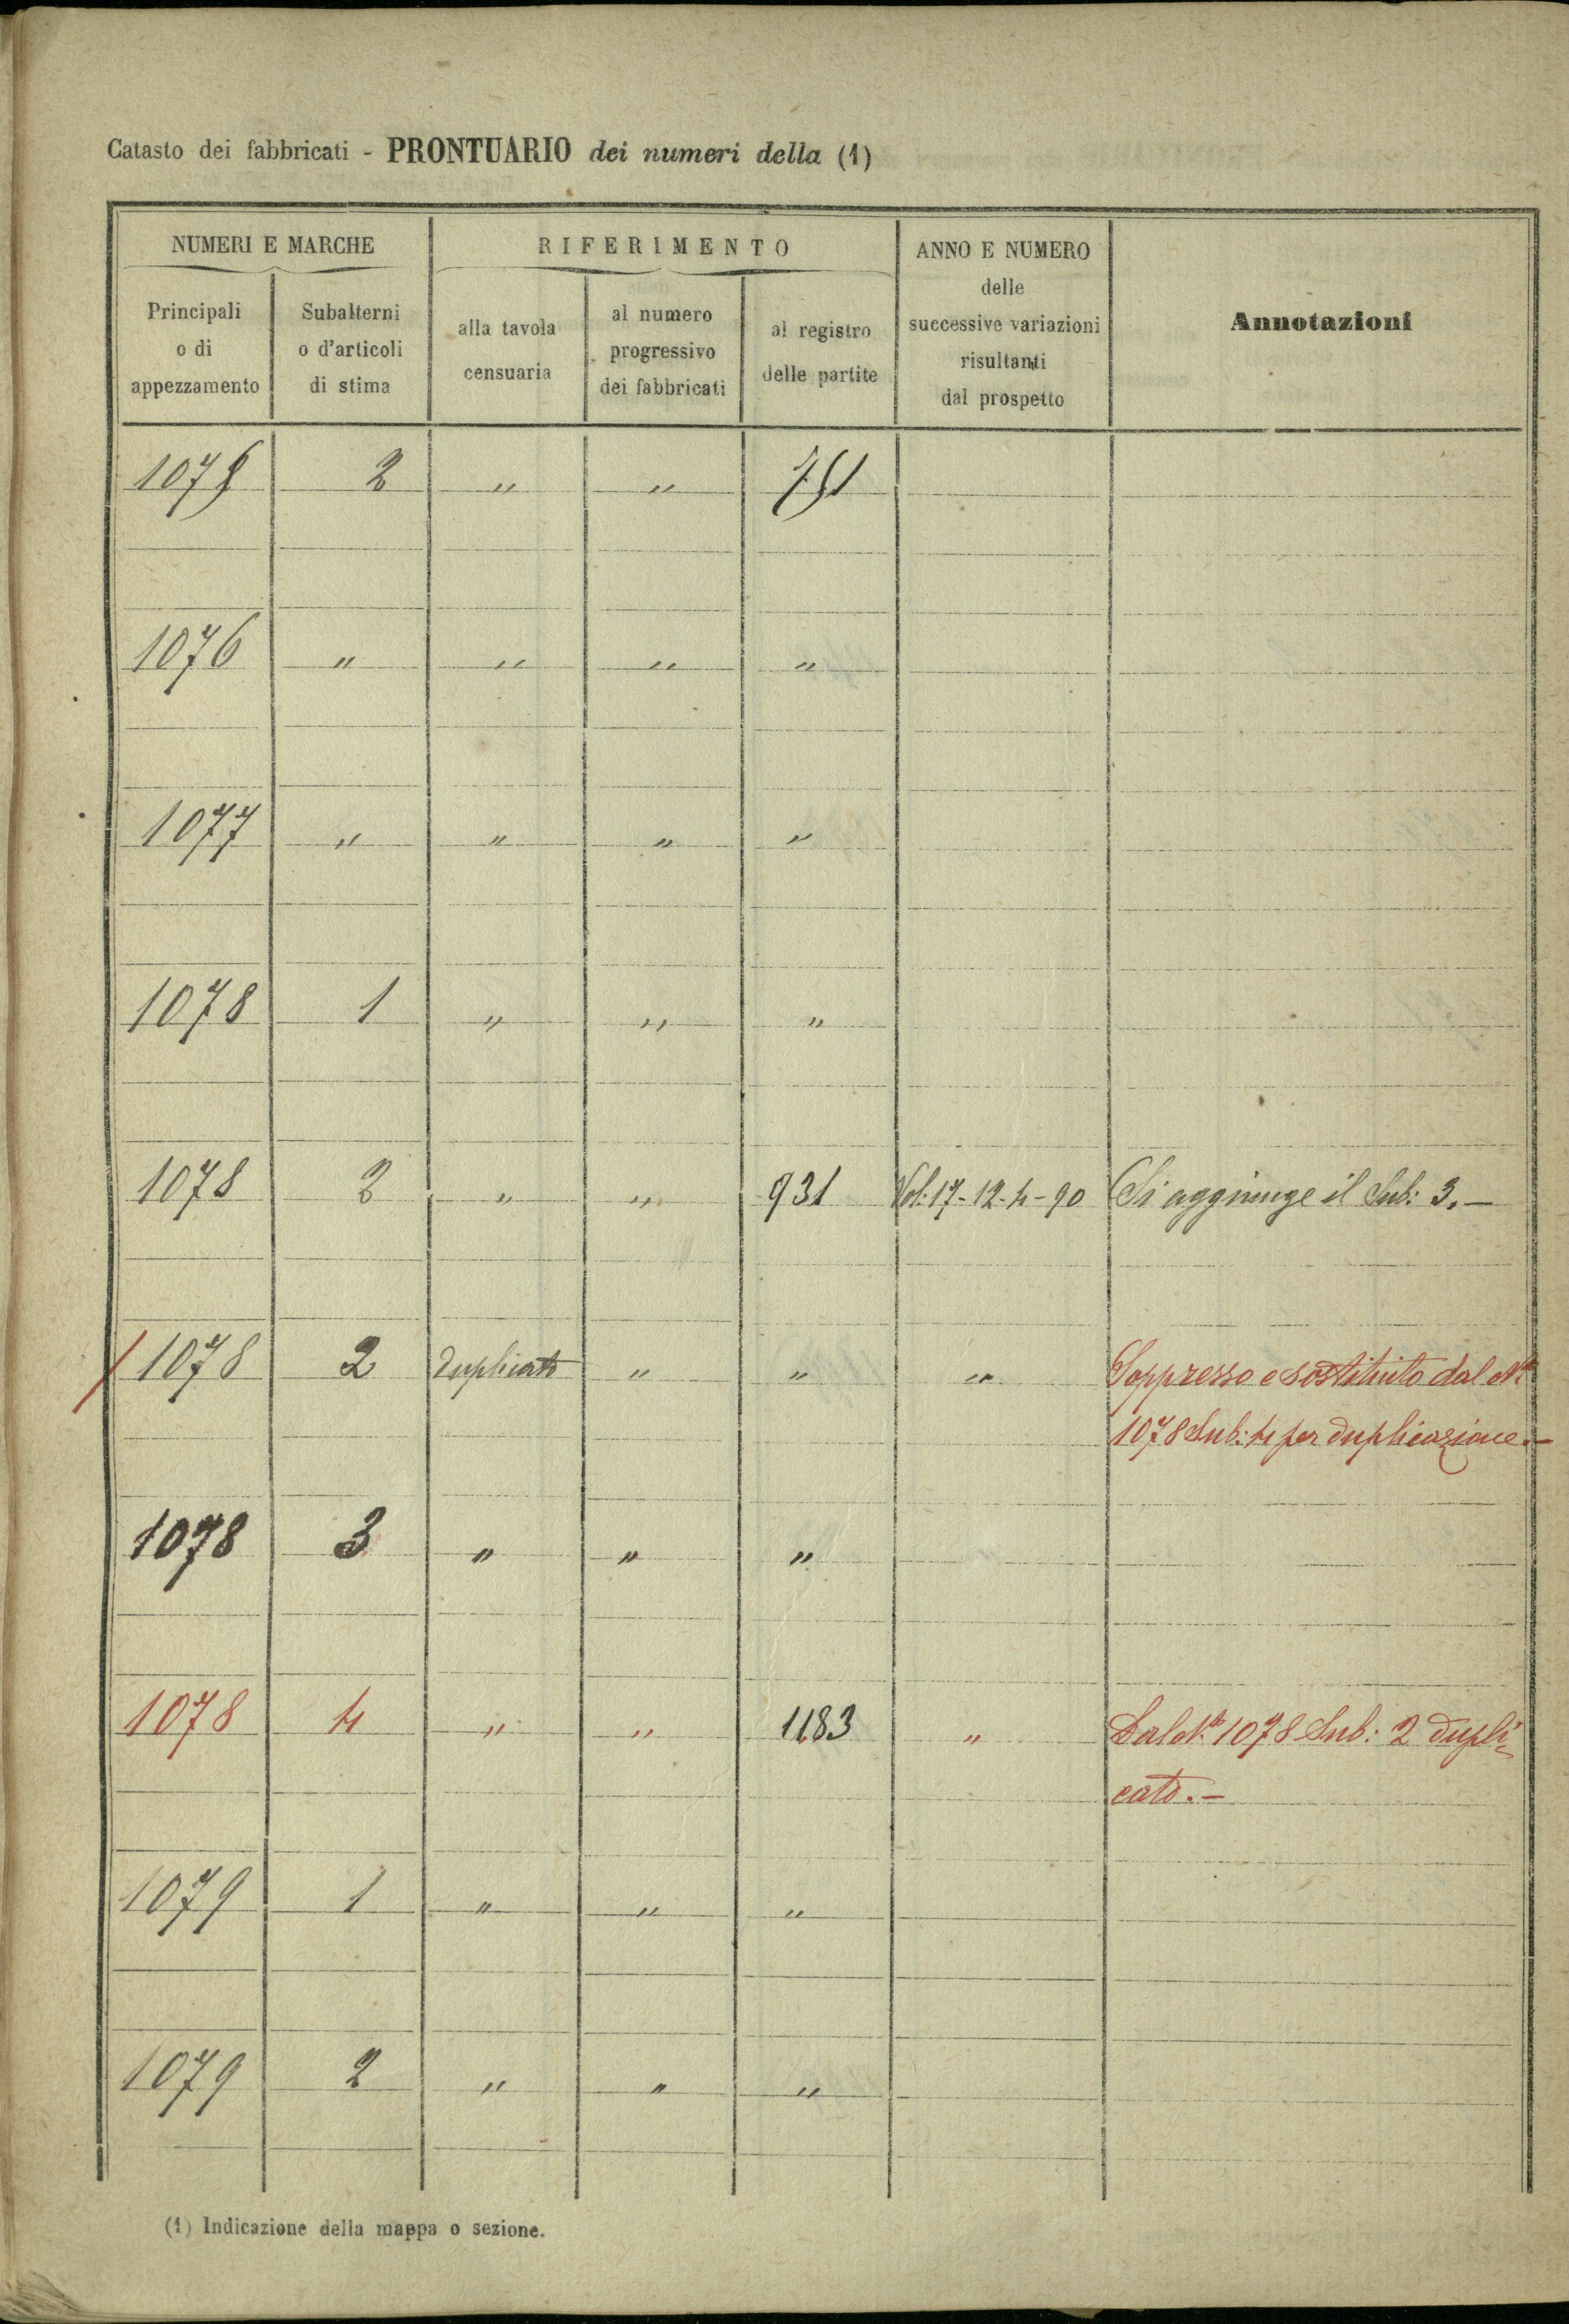 Catasto dei fabbricati - PRONTUARIO dei numeri della (1)
NUMERI E MARCHE
RIFERIMENTO
ANNO E NUMERO
delle
successive variazioni
risultanti
dal prospetto
Annotazioni
Principali
o di
appezzamento
Subalterni
o d'articoli
di stima
alla tavola
censuaria
al numero
progressivo
dei fabbricati
al registro
delle partite
1075 2 " " 751
1076 " " " "
1077 " " " "
1078 1 " " "
1078 2 " " 931 Vol: 17-12-4-90 Si aggiunge il Sub: 3.—
/ 1078 2 duplicato " " " Soppresso e sostituito dal N.°
1078 Sub: 4 per duplicazione.—
1078 3 " " "
1078 4 " " 1183 " Dal N.° 1078 Sub: 2 dupli=
cato.—
1079 1 " " "
1079 2 " " "
(1) Indicazione della mappa o sezione.